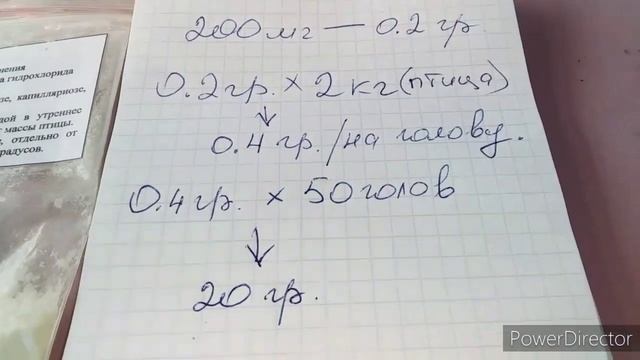 нения
а гидрохлорида
зе, капилляриозе,
дой в утреннее
г массы птицы.
е, отдельно от
радусов.
200мг — 0.2 гр.
0.2гр. × 2 кг (птица)
↓
0.4 гр./на голову.
0.4 гр. × 50 голов
↓
20 гр.
PowerDirector